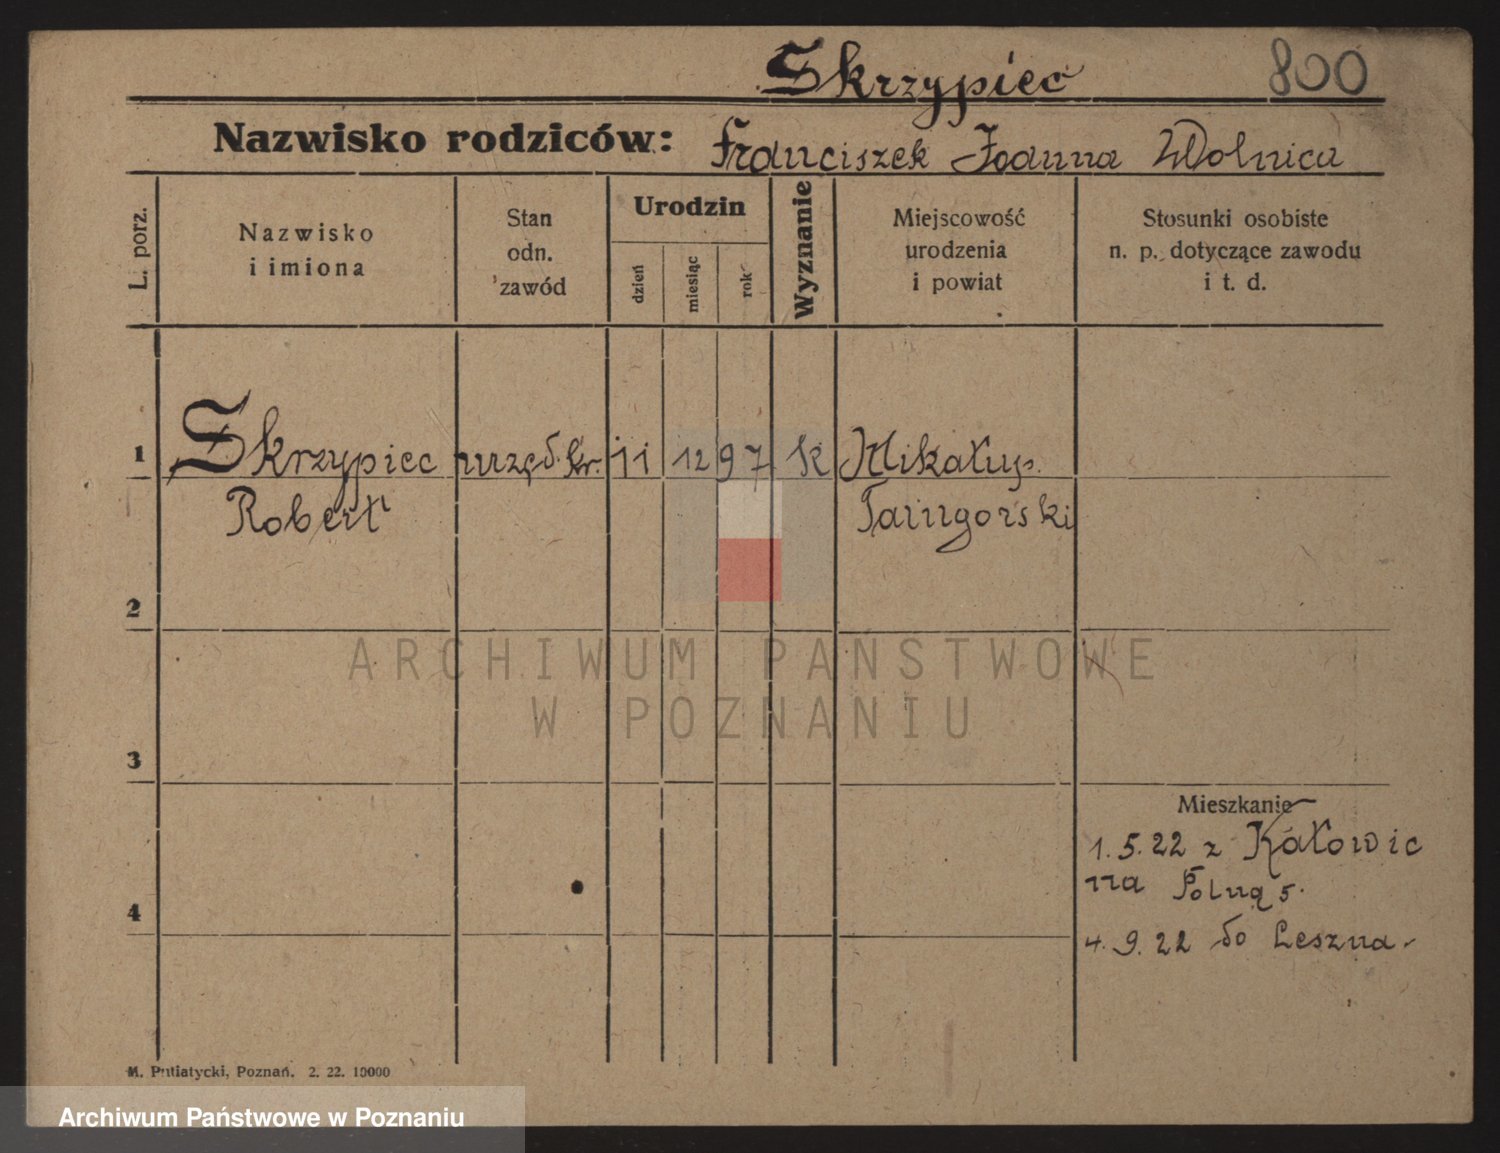 Skrzypiec 800
Nazwisko rodziców: Franciszek Joanna Wolnica
L. porz.
Nazwisko
i imiona
Stan
odn.
zawód
Urodzin
dzień
miesiąc
rok
Wyznanie
Miejscowość
urodzenia
i powiat
Stosunki osobiste
n. p. dotyczące zawodu
i t. d.
1 Skrzypiec urzęd. kr. 11 12 97 k Mikałup.
Robert Tarngorski
2
ARCHIWUM PAŃSTWOWE
W POZNANIU
3
Mieszkanie
1. 5. 22 z Katowic
na Polną 5.
4
4. 9. 22 do Leszna.
M. Putiatycki, Poznań. 2. 22. 10000
Archiwum Państwowe w Poznaniu